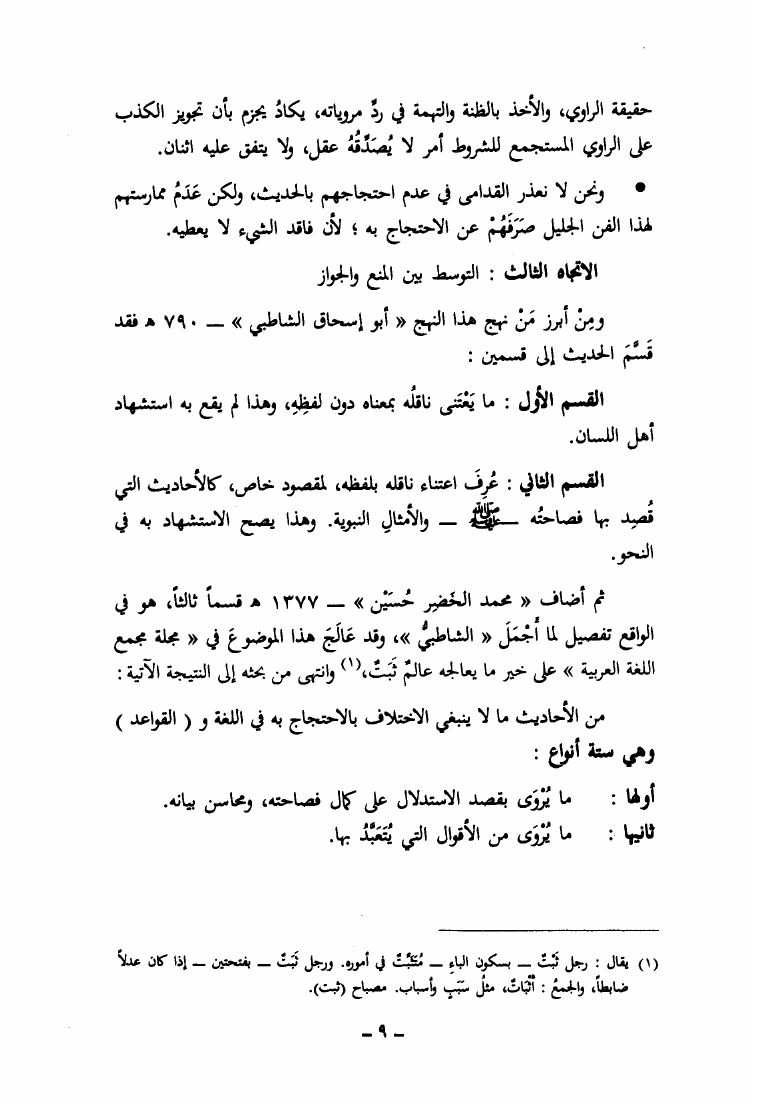 حقيقة الراوي، والأخذ بالظنة والتهمة في ردِّ مروياته، يكادُ يجزم بأن تجويز الكذب
على الراوي المستجمع للشروط أمر لا يُصَدِّقُهُ عقل، ولا يتفق عليه اثنان.
• ونحن لا نعذر القدامى في عدم احتجاجهم بالحديث، ولكن عَدَمُ ممارستهم
لهذا الفن الجليل صَرَفَهُمْ عن الاحتجاج به ؛ لأن فاقد الشيء لا يعطيه.
الاتجاه الثالث : التوسط بين المنع والجواز
ومِنْ أبرز مَنْ نهج هذا النهج « أبو إسحاق الشاطبي » — ٧٩٠ هـ فقد
قَسَّمَ الحديث إلى قسمين :
القسم الأول : ما يَعْتَنى ناقلُه بمعناه دون لفظِهِ، وهذا لم يقع به استشهاد
أهل اللسان.
القسم الثاني : عُرِفَ اعتناء ناقله بلفظه، لمقصود خاص، كالأحاديث التي
قُصِد بها فصاحتُه — ﷺ — والأمثالِ النبوية. وهذا يصح الاستشهاد به في
النحو.
ثم أضاف « محمد الخَضِر حُسَيْن » — ١٣٧٧ هـ قسماً ثالثاً، هو في
الواقع تفصيل لما أَجْمَلَ « الشاطبيُّ »، وقد عَالَجَ هذا الموضوعَ في « مجلة مجمع
اللغة العربية » على خير ما يعالجه عالمٌ ثَبَتٌ،(١) وانتهى من بحثه إلى النتيجة الآتية :
من الأحاديث ما لا ينبغي الاختلاف بالاحتجاج به في اللغة و ( القواعد )
وهي ستة أنواع :
أولها : ما يُرْوَى بقصد الاستدلال على كمال فصاحته، ومحاسن بيانه.
ثانيها : ما يُرْوَى من الأقوال التي يُتَعَبَّدُ بها.
(١) يقال : رجل ثَبْتٌ — بسكون الباءِ — مُتَثَبِّتٌ في أموره. ورجل ثَبَتٌ — بفتحتين — إذا كان عدلاً
ضابطاً، والجمعُ : أَثْبَاتٌ، مثلُ سَبَبٍ وأسباب. مصباح (ثبت).
– ٩ –